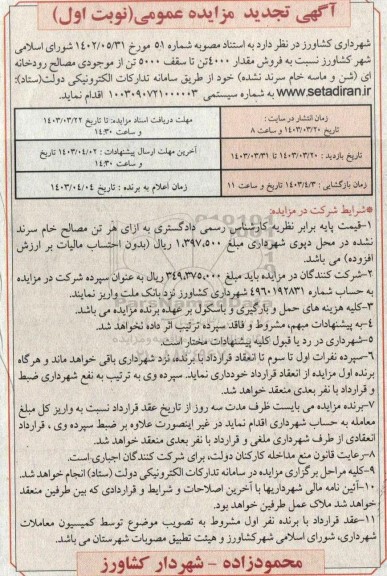 آگهی تجدید مزایده عمومی(نوبت اول)
شهرداری کشاورز در نظر دارد به استناد مصوبه شماره ۵۱ مورخ ۱۴۰۲/۰۵/۳۱ شورای اسلامی
شهر کشاورز نسبت به فروش مقدار ۴۰۰۰تن تا سقف ۵۰۰۰ تن از موجودی مصالح رودخانه
ای (شن و ماسه خام سرند نشده) خود از طریق سامانه تدارکات الکترونیکی دولت(ستاد):
www.setadiran.ir به شماره سیستمی ۱۰۰۳۰۹۰۷۲۱۰۰۰۰۰۳ اقدام نماید.
زمان انتشار در سایت :
تاریخ ۱۴۰۳/۰۳/۲۰ و ساعت ۸
مهلت دریافت اسناد مزایده: تا تاریخ ۱۴۰۳/۰۳/۲۲
و ساعت ۱۴:۳۰
تاریخ بازدید : ۱۴۰۳/۰۳/۲۰ تا ۱۴۰۳/۰۳/۳۱
آخرین مهلت ارسال پیشنهادات : ۱۴۰۳/۰۴/۰۲
و ساعت ۱۴:۳۰
زمان بازگشایی : ۱۴۰۳/۴/۳ تاریخ و ساعت ۱۱
زمان اعلام به برنده : تاریخ ۱۴۰۳/۰۴/۰۴
*شرایط شرکت در مزایده:
۱-قیمت پایه برابر نظریه کارشناس رسمی دادگستری به ازای هر تن مصالح خام سرند
نشده در محل دپوی شهرداری مبلغ ۱،۳۹۷،۵۰۰ ریال (بدون احتساب مالیات بر ارزش
افزوده) می باشد.
۲-شرکت کنندگان در مزایده باید مبلغ ۳۴۹،۳۷۵،۰۰۰ ریال به عنوان سپرده شرکت در مزایده
به حساب شماره ۴۹۶۰۱۹۲۸۳۱ شهرداری کشاورز نزد بانک ملت واریز نمایند.
۳-کلیه هزینه های حمل و بارگیری و باسکول بر عهده برنده مزایده می باشد.
۴-به پیشنهادات مبهم، مشروط و فاقد سپرده ترتیب اثر داده نخواهد شد.
۵-شهرداری در رد یا قبول کلیه پیشنهادات مختار است.
۶-سپرده نفرات اول تا سوم تا انعقاد قرارداد با برنده، نزد شهرداری باقی خواهد ماند و هرگاه
برنده اول مزایده از انعقاد قرارداد خودداری نماید. سپرده وی به ترتیب به نفع شهرداری ضبط
و قرارداد با نفر بعدی منعقد خواهد شد.
۷-برنده مزایده می بایست ظرف مدت سه روز از تاریخ عقد قرارداد نسبت به واریز کل مبلغ
معامله به حساب شهرداری اقدام نماید در غیر اینصورت علاوه بر ضبط سپرده وی ، قرارداد
انعقادی از طرف شهرداری ملغی و قرارداد با نفر بعدی منعقد خواهد شد.
۸-رعایت قانون منع مداخله کارکنان دولت، برای شرکت کنندگان اجباری است.
۹-کلیه مراحل برگزاری مزایده در سامانه تدارکات الکترونیکی دولت (ستاد) انجام خواهد شد.
۱۰-آئین نامه مالی شهرداریها با آخرین اصلاحات و شرایط و قراردادی که بین طرفین منعقد
خواهد شد ملاک عمل طرفین خواهد بود.
۱۱-عقد قرارداد با برنده نفر اول مشروط به تصویب موضوع توسط کمیسیون معاملات
شهرداری، شورای اسلامی شهرکشاورز و هیئت تطبیق مصوبات شهرستان می باشد.
محمودزاده - شهردار کشاورز